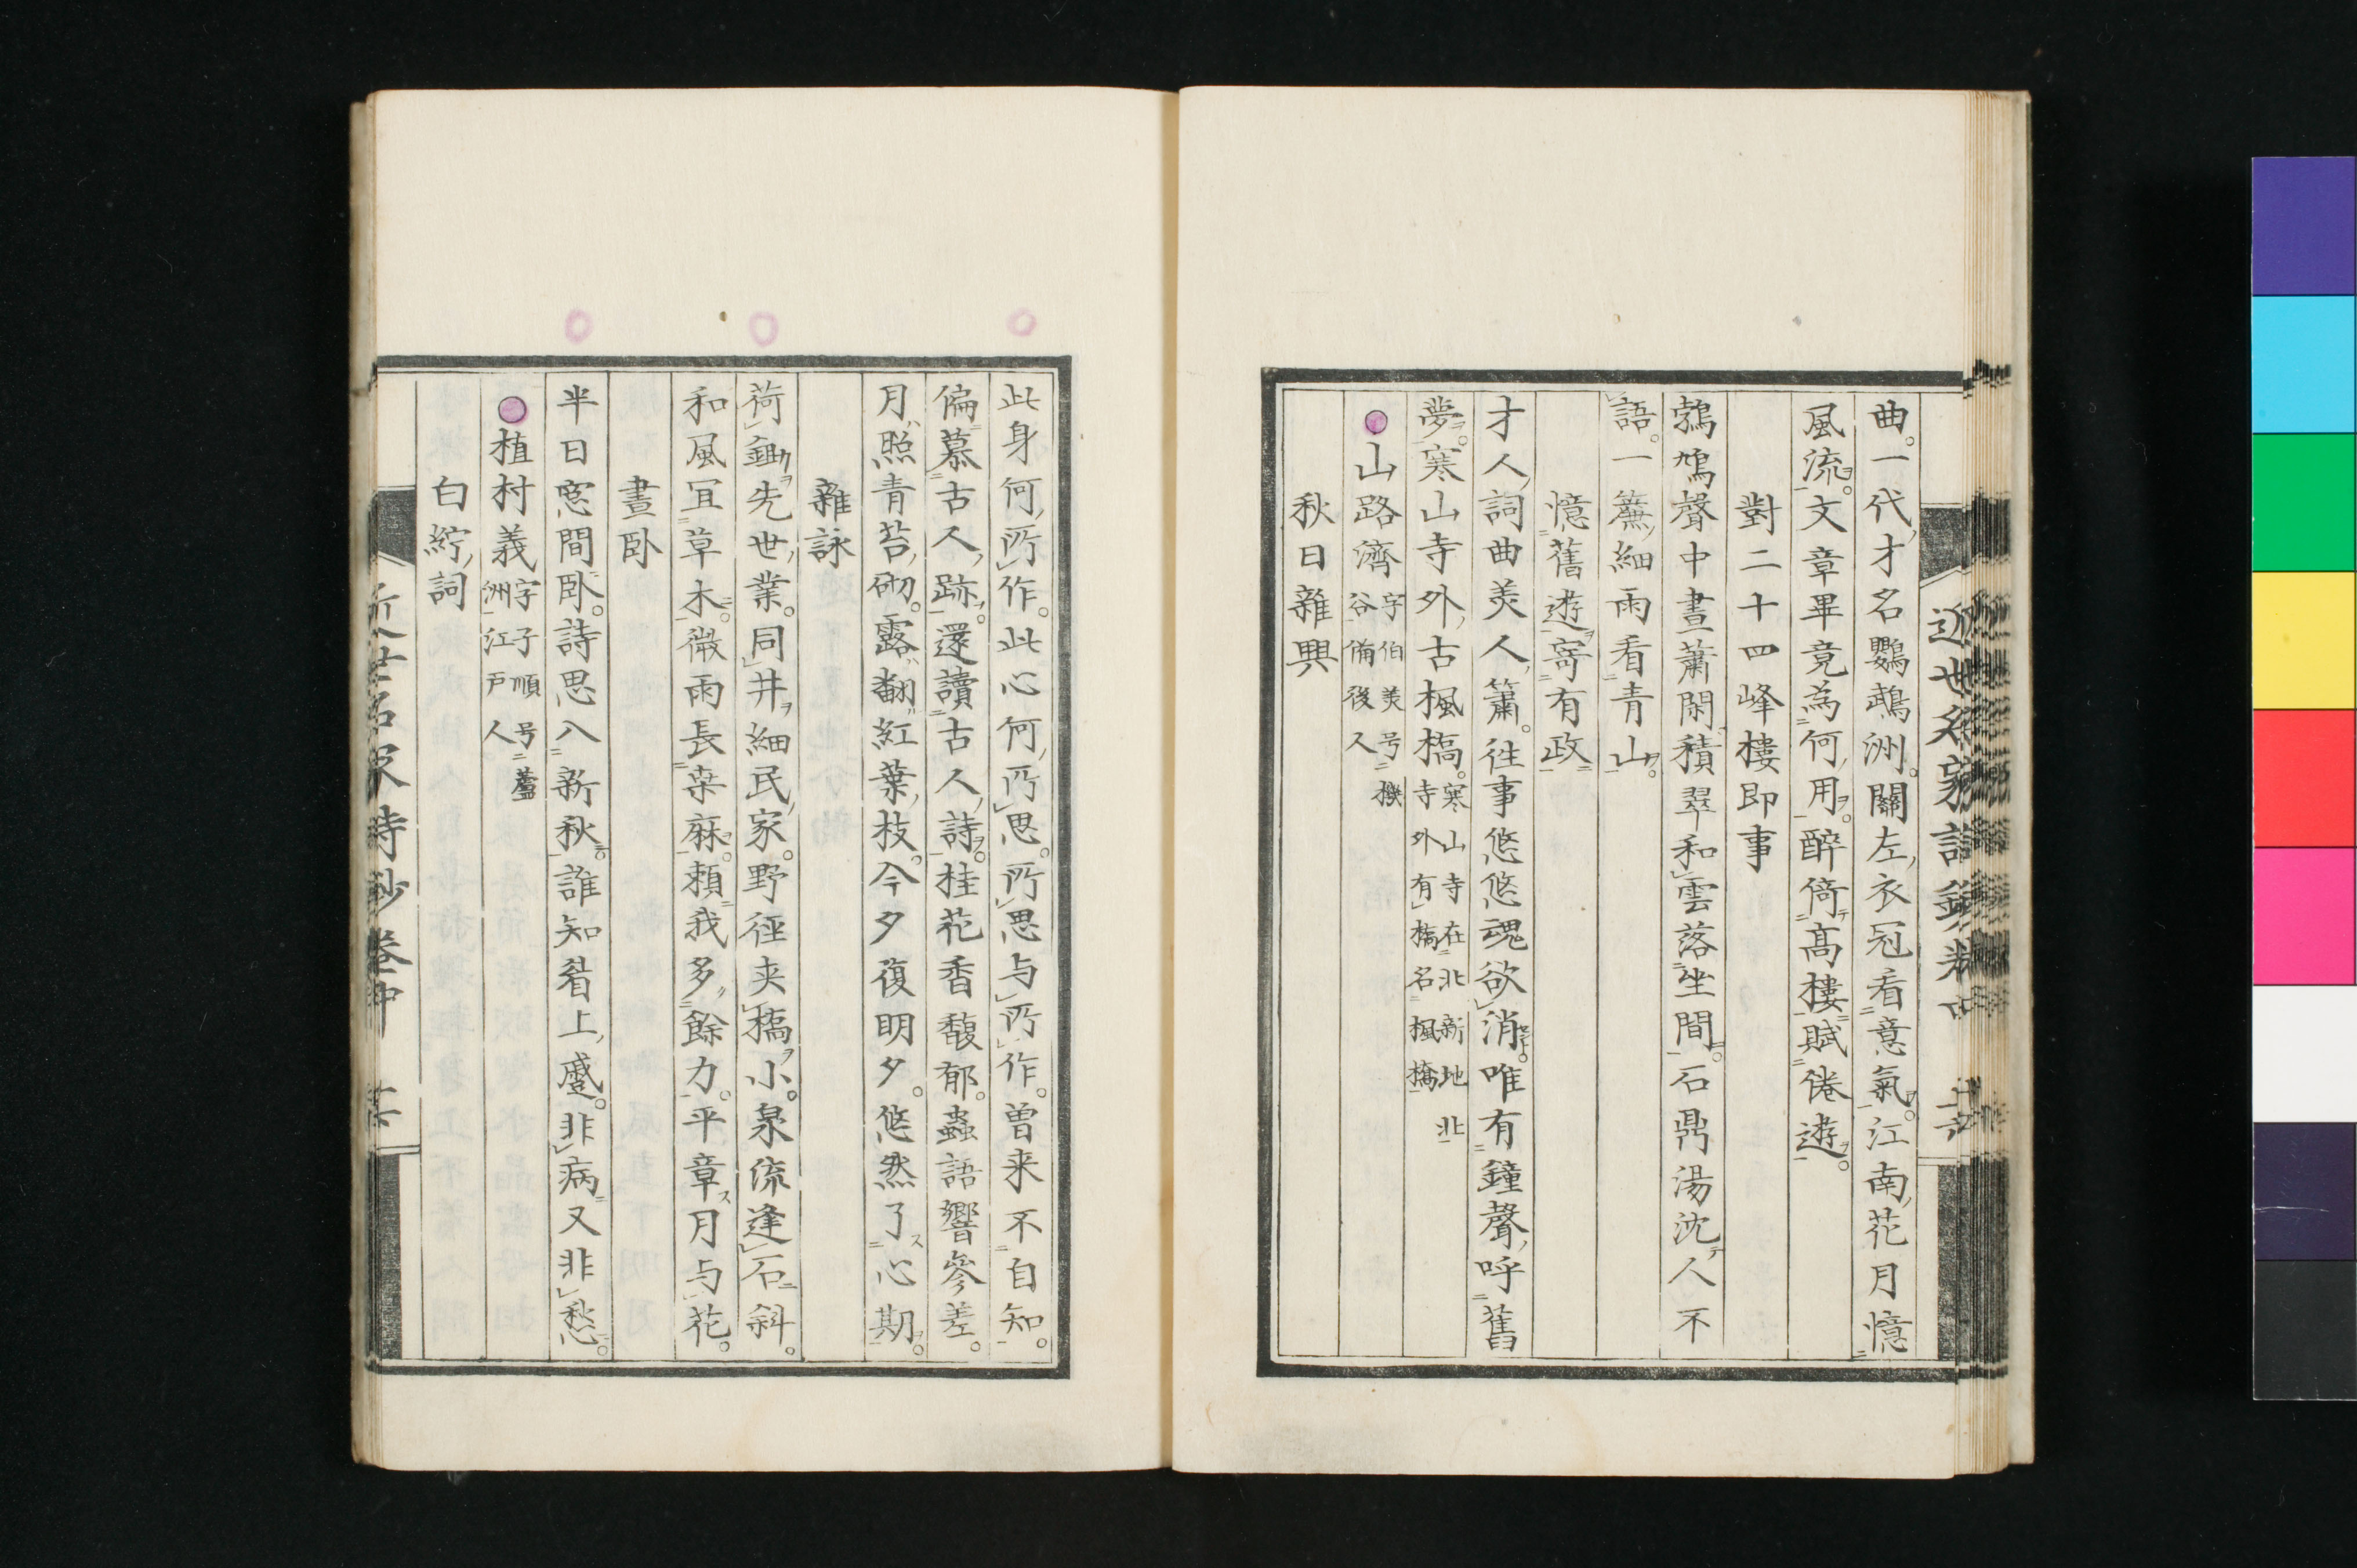 曲。一代才名鸚鵡洲。關左衣冠看意氣。江南花月憶
風流。文章畢竟為何用。醉倚髙樓賦倦遊。
對二十四峰樓即事
鵓鳩聲中晝蕭閑。積翠和雲落坐間。石鼎湯沈人不
語。一簾細雨看青山。
憶舊遊寄有政
才人詞曲美人簫。往事悠悠魂欲消。唯有鐘聲呼舊
夢。寒山寺外古楓橋。寒山寺在北新地北
寺外有橋名楓橋
山路濟字伯美号機
谷備後人
秋日雜興
此身何所作。此心何所思。所思与所作。曽来不自知。
偏慕古人跡。還讀古人詩。桂花香馥郁。蟲語響參差。
月照青苔砌。露翻紅葉枝。今夕復明夕。悠然了心期。
雜詠
荷鋤先世業。同井細民家。野徑夾橋小。泉流逢石斜。
和風冝草木。微雨長桒麻。頼我多餘力。平章月与花。
晝卧
半日窓間卧。詩思入新秋。誰知眉上蹙。非病又非愁。
植村義字子順号蘆
洲江戸人
白紵詞
近世名家詩鈔卷中